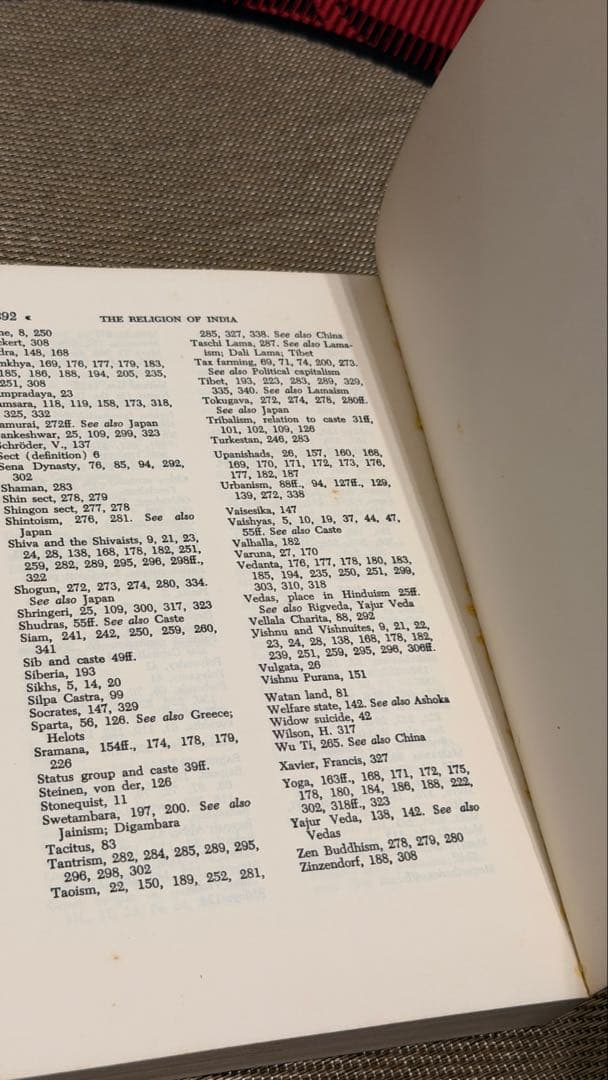 392 «
THE RELIGION OF INDIA
8, 250
308
148, 168
169, 176, 177, 179, 183,
185, 186, 188, 194, 205, 235,
251, 308
23
118, 119, 158, 173, 318,
325, 332
272ff. See also Japan
25, 109, 299, 323
Schröder, V., 137
Sect (definition) 6
Sena Dynasty, 76, 85, 94, 292,
302
Shaman, 283
Shin sect, 278, 279
Shingon sect, 277, 278
Shintoism, 276, 281. See also
Japan
Shiva and the Shivaists, 9, 21, 23,
24, 28, 138, 168, 178, 182, 251,
259, 282, 289, 295, 296, 298ff.,
322
Shogun, 272, 273, 274, 280, 334.
See also Japan
Shringeri, 25, 109, 300, 317, 323
Shudras, 55ff. See also Caste
Siam, 241, 242, 250, 259, 260,
341
Sib and caste 49ff.
Siberia, 193
Sikhs, 5, 14, 20
Silpa Castra, 99
Socrates, 147, 329
Sparta, 56, 126. See also Greece;
Helots
Sramana, 154ff., 174, 178, 179,
226
Status group and caste 39ff.
Steinen, von der, 126
Stonequist, 11
Swetambara, 197, 200. See also
Jainism; Digambara
Tacitus, 83
Tantrism, 282, 284, 285, 289, 295,
296, 298, 302
Taoism, 22, 150, 189, 252, 281,
285, 327, 338. See also China
Taschi Lama, 287. See also Lama-
ism; Dali Lama; Tibet
Tax farming, 69, 71, 74, 200, 273.
See also Political capitalism
Tibet, 193, 223, 283, 289, 329,
335, 340. See also Lamaism
Tokugava, 272, 274, 278, 280ff.
See also Japan
Tribalism, relation to caste 31ff,
101, 102, 109, 126
Turkestan, 246, 283
Upanishads, 26, 157, 160, 168,
169, 170, 171, 172, 173, 176,
177, 182, 187
Urbanism, 88ff., 94, 127ff., 129,
139, 272, 338
Vaisesika, 147
Vaishyas, 5, 10, 19, 37, 44, 47,
55ff. See also Caste
Valhalla, 182
Varuna, 27, 170
Vedanta, 176, 177, 178, 180, 183,
185, 194, 235, 250, 251, 299,
303, 310, 318
Vedas, place in Hinduism 25ff.
See also Rigveda, Yajur Veda
Vellala Charita, 88, 292
Vishnu and Vishnuites, 9, 21, 22,
23, 24, 28, 138, 168, 178, 182,
239, 251, 259, 295, 296, 306ff.
Vulgata, 26
Vishnu Purana, 151
Watan land, 81
Welfare state, 142. See also Ashoka
Widow suicide, 42
Wilson, H. 317
Wu Ti, 265. See also China
Xavier, Francis, 327
Yoga, 163ff., 168, 171, 172, 175,
178, 180, 184, 186, 188, 222,
302, 318ff., 323
Yajur Veda, 138, 142. See also
Vedas
Zen Buddhism, 278, 279, 280
Zinzendorf, 188, 308